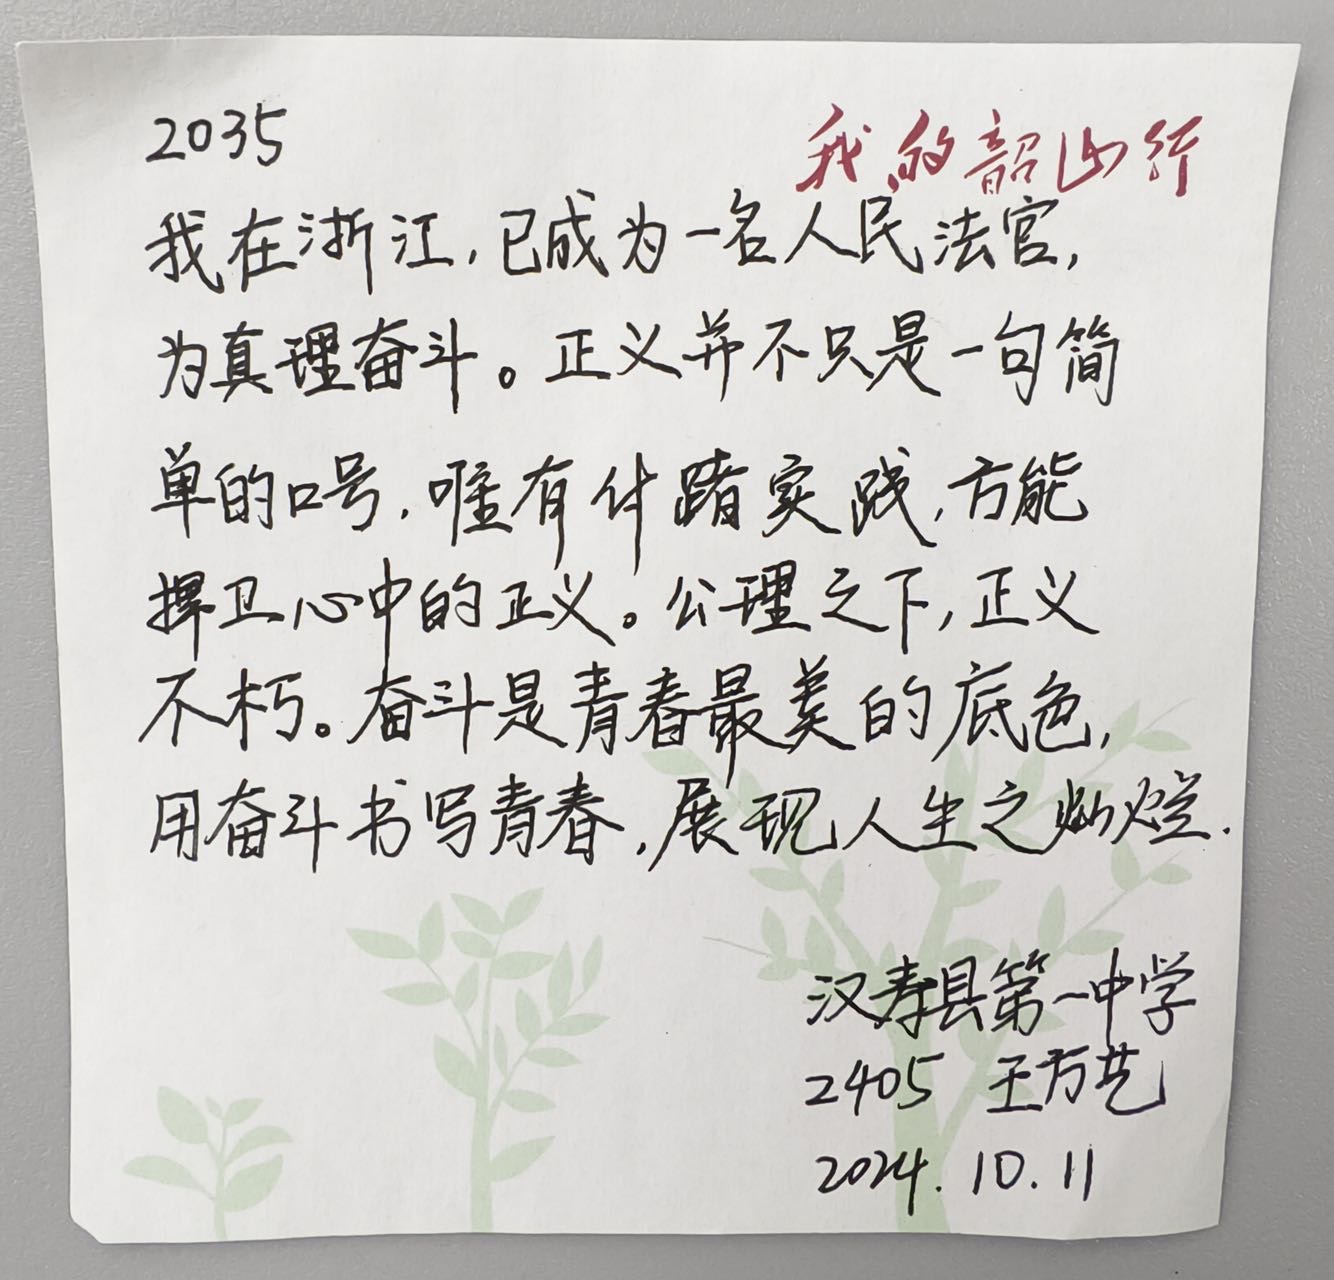 2035
我的韶山行
我在浙江,已成为一名人民法官,
为真理奋斗。正义并不只是一句简
单的口号,唯有付踏实践,方能
捍卫心中的正义。公理之下,正义
不朽。奋斗是青春最美的底色,
用奋斗书写青春,展现人生之灿烂.
汉寿县第一中学
2405 王方艺
2024.10.11